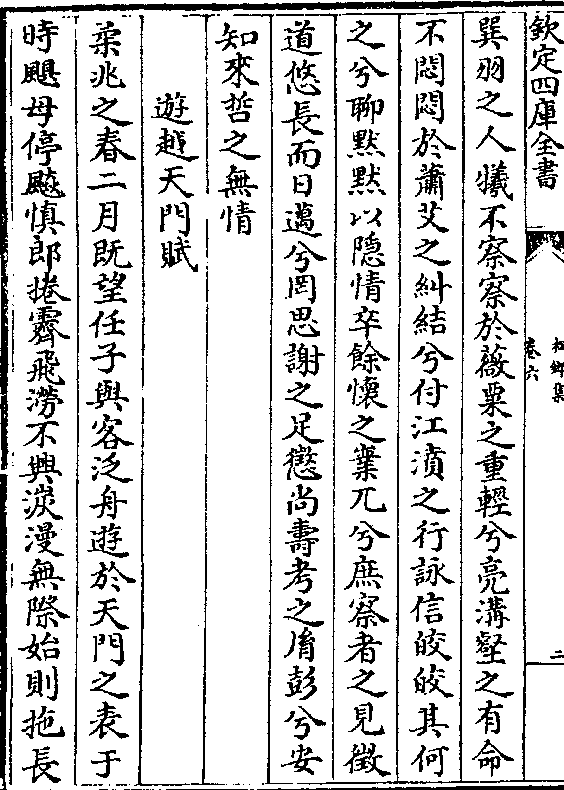 欽定四庫全書
松鄉集
卷六
二
巽羽之人犧不察察於薇粟之重輕兮亮溝壑之有命
不悶悶於蕭艾之糾結兮付江濆之行詠信皎皎其何
之兮聊默默以隠情卒餘懷之業兀兮庶察者之見徵
道悠長而日邁兮罔思謝之足懲尚壽考之脩彭兮安
知來哲之無情
遊越天門賦
柔兆之春二月既望任子與客泛舟遊於天門之表于
時颶母停飈慎郎捲霽飛澇不興淡漫無際始則拖長